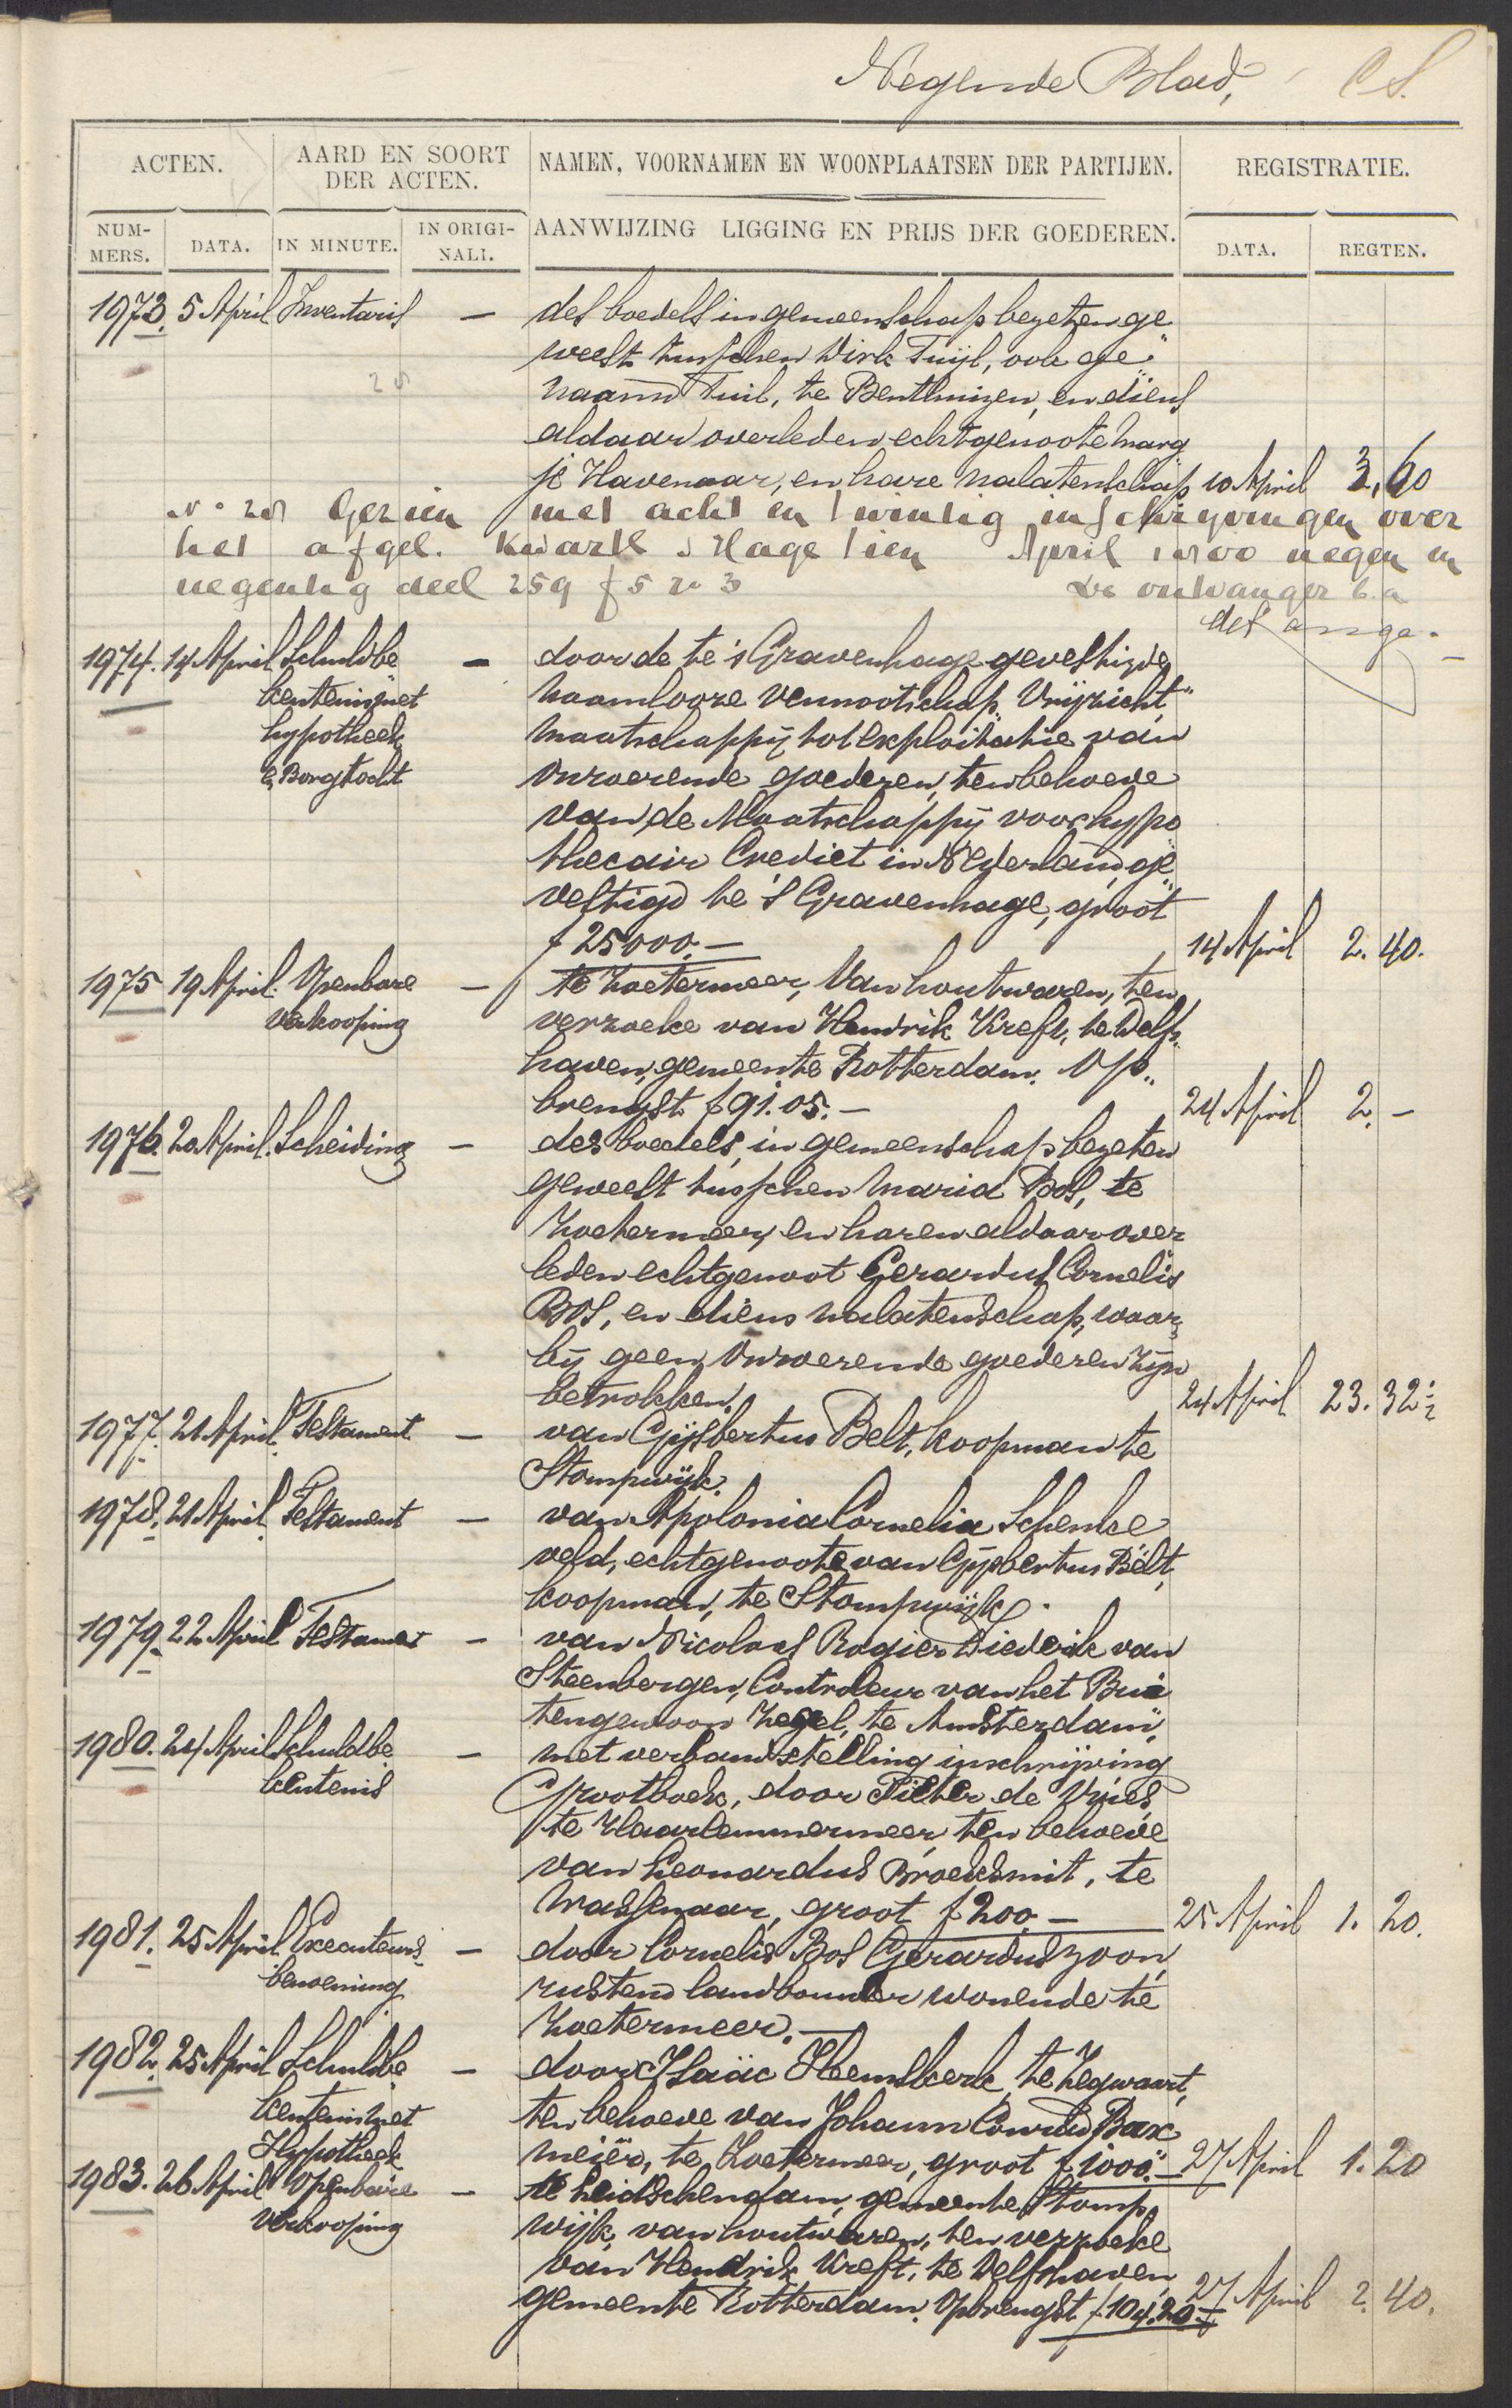 Negende Blad, C S.
ACTEN. AARD EN SOORT DER ACTEN. NAMEN, VOORNAMEN EN WOONPLAATSEN DER PARTIJEN. REGISTRATIE.
NUM-MERS. DATA. IN MINUTE. IN ORIGI-NALI. AANWIJZING LIGGING EN PRIJS DER GOEDEREN. DATA. REGTEN.
1973. 5 April Inventaris — des boedels in gemeenschap bezeten ge
weest tusschen Dirk Tuijl, ook ge
naamd Tuil, te Benthuizen, en diens
aldaar overleden echtgenoote Marg
je Havenaar, en hare nalatenschap 10 April 3,60
No 28 Gezien met acht en twintig inschrijvingen over
het afgel. kwartl s Hage tien April 1800 negen en
negentig deel 259 f 5 v 3 De ontvanger b.a
1974. 14 April Schuldbe — door de te 's Gravenhage gevestigde
kentenis met naamlooze vennootschap "Vrijzicht"
hypotheek Maatschappij tot exploitatie van
& Borgtocht Onroerende goederen, ten behoeve
van de Maatschappij voor hypo
thecair Crediet in Nederland, ge
vestigd te 's Gravenhage, groot
f 25000.— 14 April 2.40.
1975 19 April. Openbare — te Zoetermeer, Van houtwaren, ten
verkooping verzoeke van Hendrik Kreft, te Delfs
haven, gemeente Rotterdam. Op
brengst f 91.05.— 24 April 2.—
1976. 20 April. Scheiding — des boedels, in gemeenschap bezeten
geweest tusschen Maria Bos, te
Zoetermeer, en haren aldaar over
leden echtgenoot Gerardus Cornelis
Bos, en diens nalatenschap, waar
bij geen Onroerende goederen zijn
betrokken. 24 April 23.32½
1977. 21 April. Testament — van Gijsbertus Belt, koopman te
Stompwijk.
1978. 21 April Testament — van Apolonia Cornelia Schenke
veld, echtgenoote van Gijsbertus Belt,
koopman, te Stompwijk.
1979. 22 April Testament — van Nicolaas Rogier Diederik van
Steenbergen, Controleur van het Bui
tengewoon Zegel, te Amsterdam,
1980. 24 April Schuldbe — met verbandstelling inschrijving
kentenis Grootboek, door Pieter de Vries
te Haarlemmermeer, ten behoeve
van Leonardus Broeksmit, te
Wassenaar, groot f 200.— 25 April 1.20.
1981. 25 April Executeurs — door Cornelis Bos Gerarduszoon,
benoeming rustend landbouwer wonende te
Zoetermeer.—
1982. 25 April Schuldbe — door Isaäc Heemskerk, te Zegwaart,
kentenis met ten behoeve van Johann Conrad Bax
Hypotheek meier, te Zoetermeer, groot f 1000.— 27 April 1.20
1983. 26 April Openbare — te Leidschendam, gemeente Stomp
verkooping wijk, van houtwaren, ten verzoeke
van Hendrik Kreft, te Delfshaven,
gemeente Rotterdam. Opbrengst f 104.20 27 April 2.40.